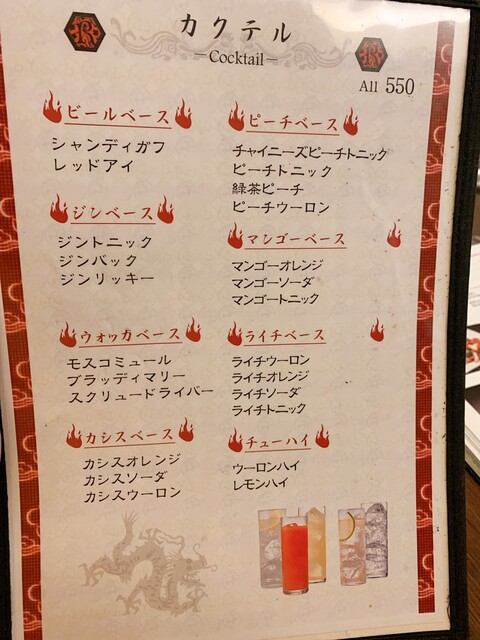 カクテル
—Cocktail—
All 550
ビールベース
シャンディガフ
レッドアイ
ジンベース
ジントニック
ジンバック
ジンリッキー
ウォッカベース
モスコミュール
ブラッディマリー
スクリュードライバー
カシスベース
カシスオレンジ
カシスソーダ
カシスウーロン
ピーチベース
チャイニーズピーチトニック
ピーチトニック
緑茶ピーチ
ピーチウーロン
マンゴーベース
マンゴーオレンジ
マンゴーソーダ
マンゴートニック
ライチベース
ライチウーロン
ライチオレンジ
ライチソーダ
ライチトニック
チューハイ
ウーロンハイ
レモンハイ